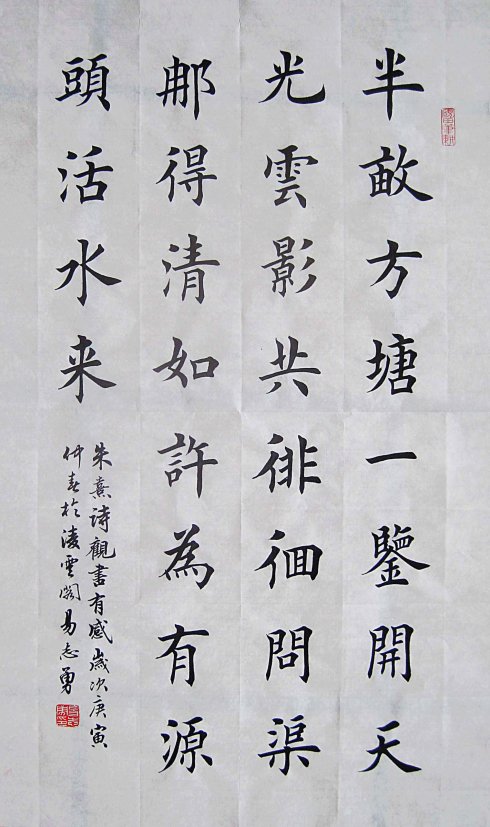 半畝方塘一鑒開天
光雲影共徘徊問渠
那得清如許為有源
頭活水来
朱熹詩觀書有感歲次庚寅
仲春於凌雲閣易志勇